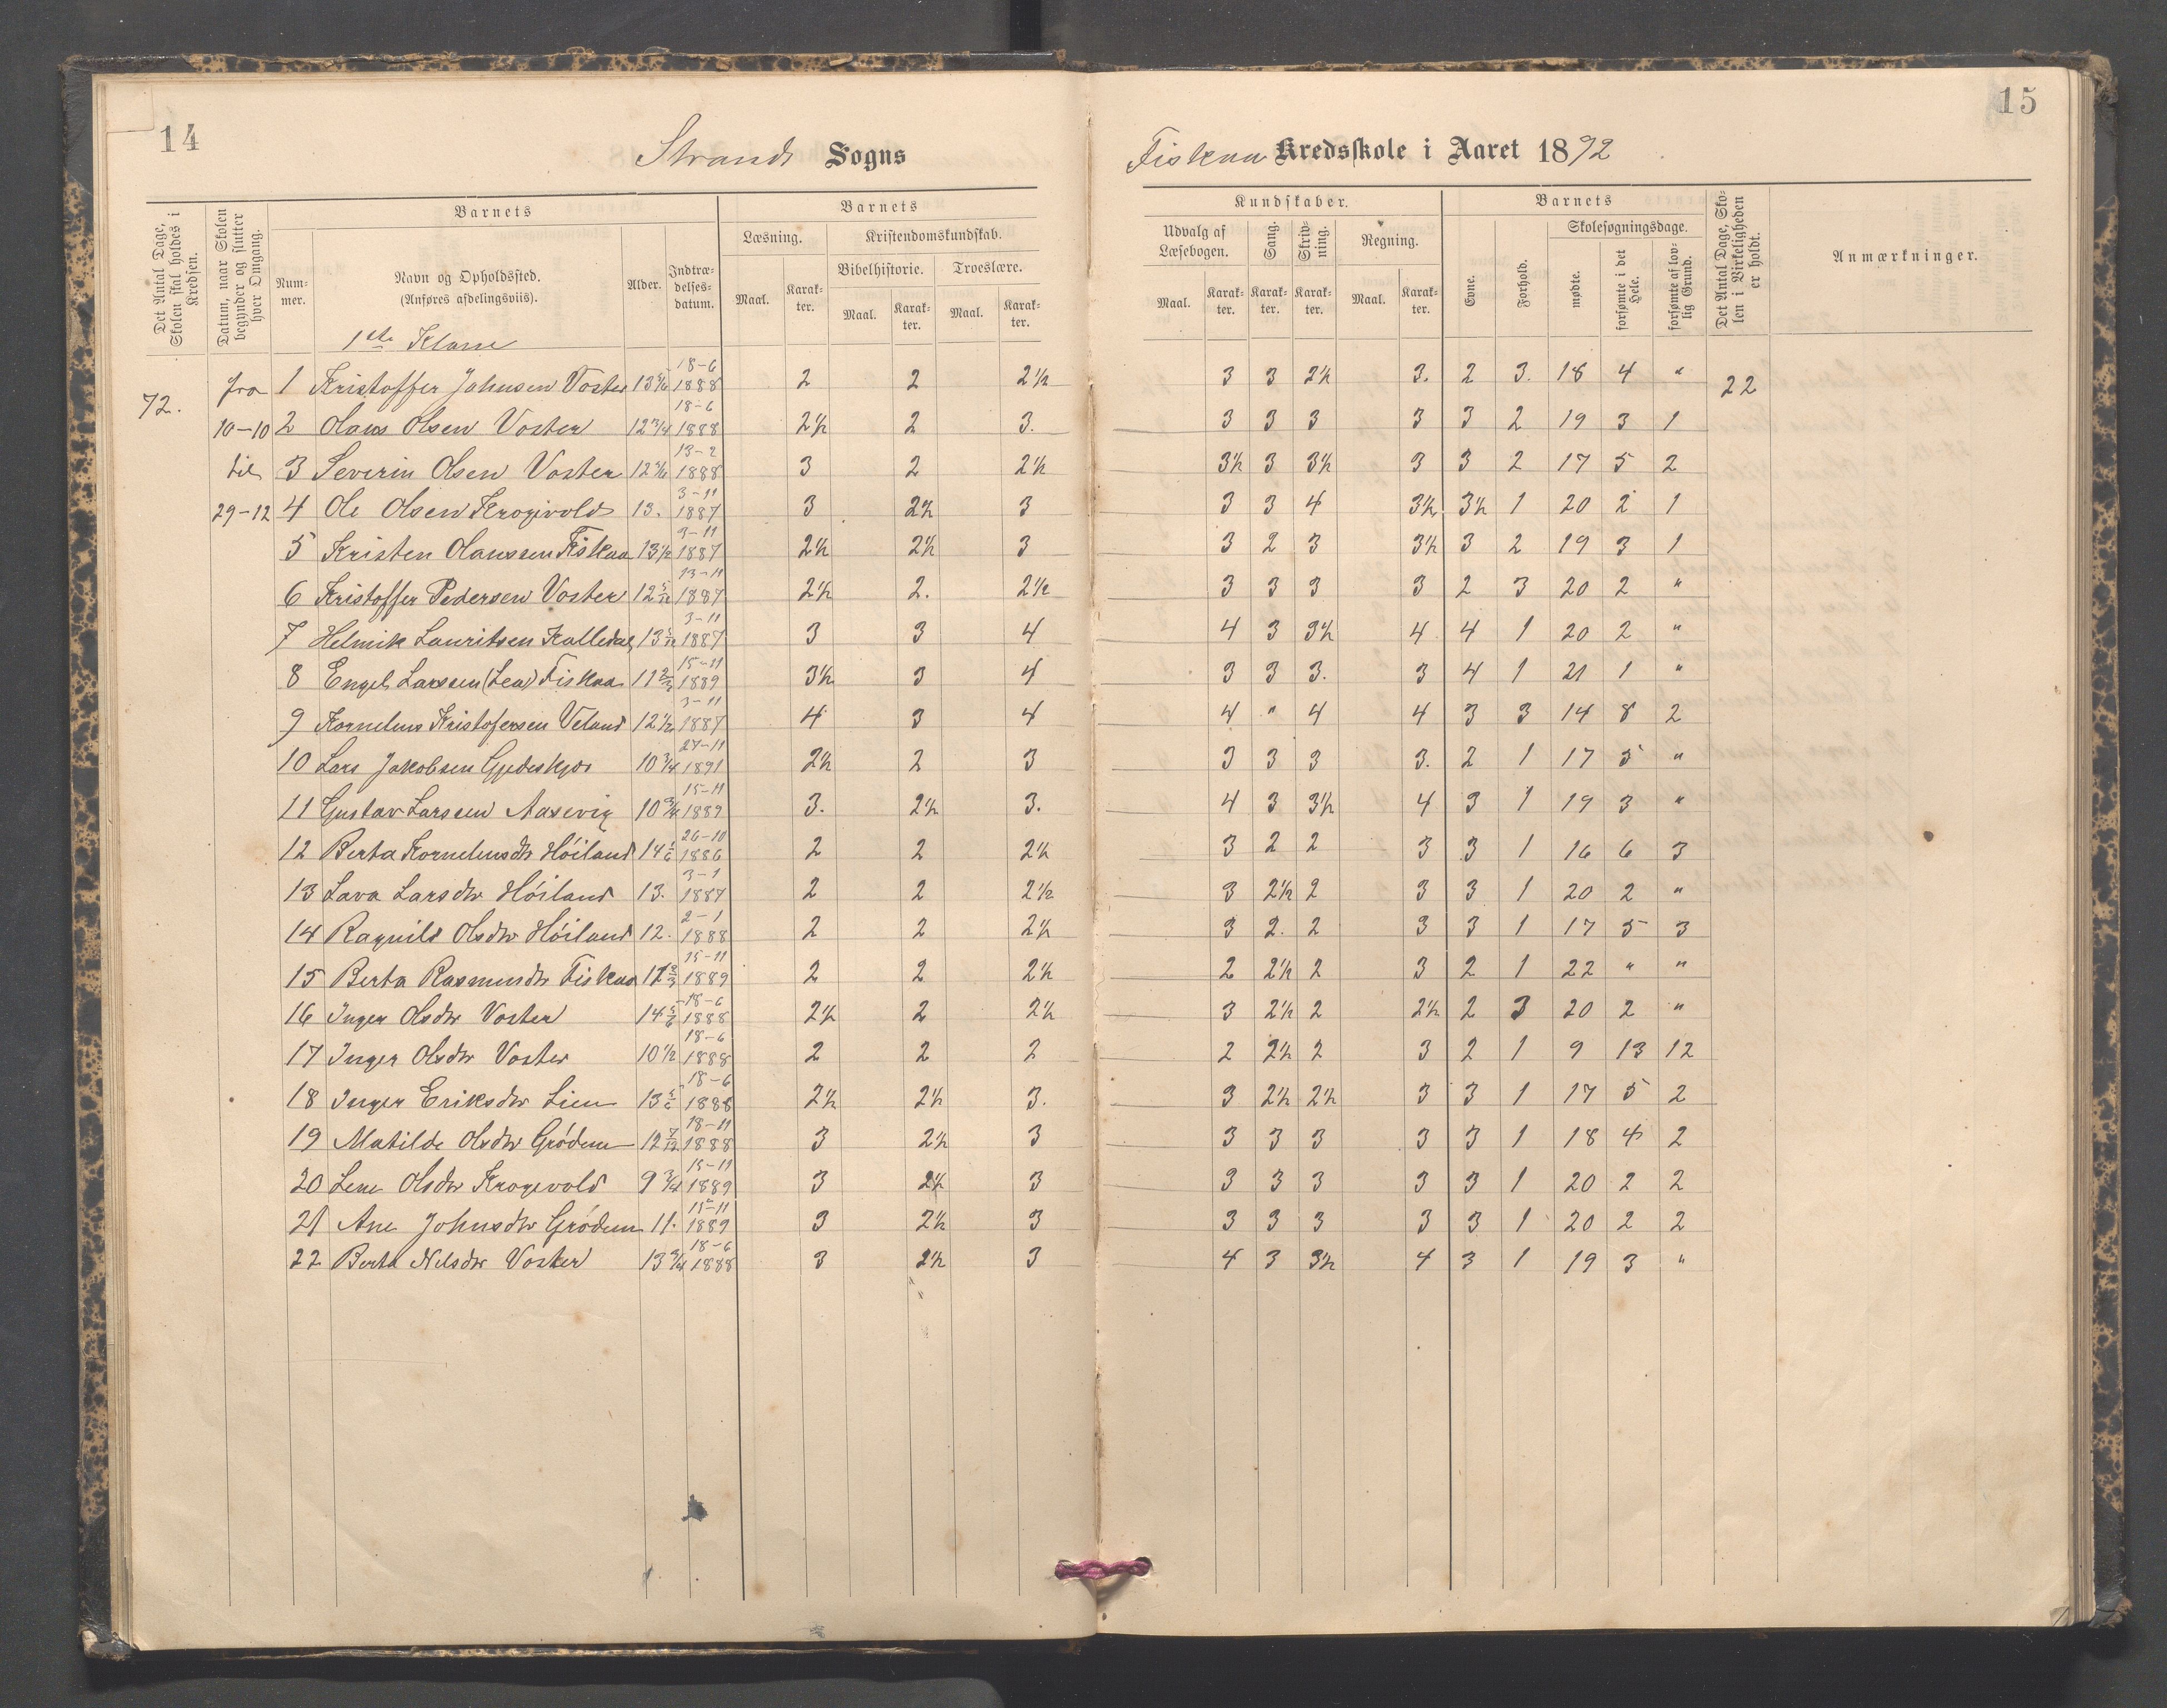 14
Strands Sogns
Det Antal Dage, Skolen skal holdes i Kredsen.
Datum, naar Skolen begynder og slutter hver Omgang.
Barnets
Nummer.
Navn og Opholdssted.
(Anføres afdelingsviis).
Alder.
Indtrædelsesdatum.
Barnets
Læsning.
Kristendomskundskab.
Bibelhistorie.
Troeslære.
Maal. Karakter. Maal. Karakter. Maal. Karakter.
1ste Klasse
72.
fra
10-10
til
29-12
1 Kristoffer Johnsen Voster 18-6 1888 2 2 2½
2 Olaus Olsen Voster 12 3/4 18-6 1888 2½ 2 3.
3 Severin Olsen Voster 13-2 1888 3 2 2½
4 Ole Olsen Krogevold 13. 3-11 1887 3 2½ 3
5 Kristen Olaussen Fiskaa 13½ 3-11 1887 2½ 2½ 3
6 Kristoffer Pedersen Voster 12 5/12 13-11 1887 2½ 2. 2½
7 Helmik Lauritsen Kalledal 3-11 1887 3 3 4
8 Engel Larssen (Lea) Fiskaa 11 2/3 15-11 1889 3½ 3 4
9 Kornelius Kristofersen Veland 12½ 3-11 1887 4 3 4
10 Lars Jakobsen 10 3/4 27-11 1891 2½ 2 3
11 Gustav Larssen Aasevig 10 3/4 15-11 1889 3. 2½ 3.
12 Berta Kornelensdtr Höiland 14 1/6 26-10 1886 2 2 2½
13 Lava Larsdtr Höiland 13. 3-1 1887 2 2 2½
14 Ragnild Olsdtr Höiland 12. 2-1 1888 2 2 2½
15 Berta Rasmusdtr Fiskaa 15-11 1889 2 2 2½
16 Inger Olsdtr Voster 14 5/6 18-6 1888 2½ 2 2½
17 Inger Olsdtr Voster 10½ 18-6 1888 2 2 2
18 Inger Eriksdtr Lien 13 5/6 18-6 1888 2½ 2½ 3.
19 Matilde Olsdtr Grödem 12 7/12 18-11 1888 3 2½ 3
20 Lene Olsdtr Krogevold 9 3/4 15-11 1889 3 2½ 3
21 Ane Johnsdtr Grödem 11. 15-11 1889 3 2½ 3
22 Berta Nilsdtr Voster 13 3/4 18-6 1888 3 2½ 3
15
Fiskaa Kredsskole i Aaret 1892
Kundskaber.
Udvalg af Læsebogen.
Sang.
Skrivning.
Regning.
Maal. Karakter. Karakter. Karakter. Maal. Karakter.
Barnets
Evne.
Forhold.
Skolesøgningsdage.
mødte.
forsømte i det Hele.
forsømte af lovlig Grund.
Det Antal Dage, Skolen i Virkeligheden er holdt.
Anmærkninger.
3 3 2½ 3. 2 3. 18 4 " 22
3 3 3 3 3 2 19 3 1
3½ 3 3½ 3 3 2 17 5 2
3 3 4 3½ 3½ 1 20 2 1
3 2 3 3½ 3 2 19 3 1
3 3 3 3 2 3 20 2 "
4 3 3½ 4 4 1 20 2 "
3 3 3. 3 4 1 21 1 "
4 " 4 4 3 3 14 8 2
3 3 3 3. 2 1 17 5 "
4 3 3½ 4 3 1 19 3 "
3 2 2 3 3 1 16 6 3
3 2½ 2 3 3 1 20 2 "
3 2. 2 3 3 1 17 5 3
2 2½ 2 3 2 1 22 " "
3 2½ 2 2½ 2 3 20 2 "
2 2½ 2 3 2 1 9 13 12
3 2½ 2½ 3 3 1 17 5 2
3 3 3 3 3 1 18 4 2
3 3 3 3 3 1 20 2 2
3 3 3 3 3 1 20 2 2
4 3 3½ 4 3 1 19 3 "